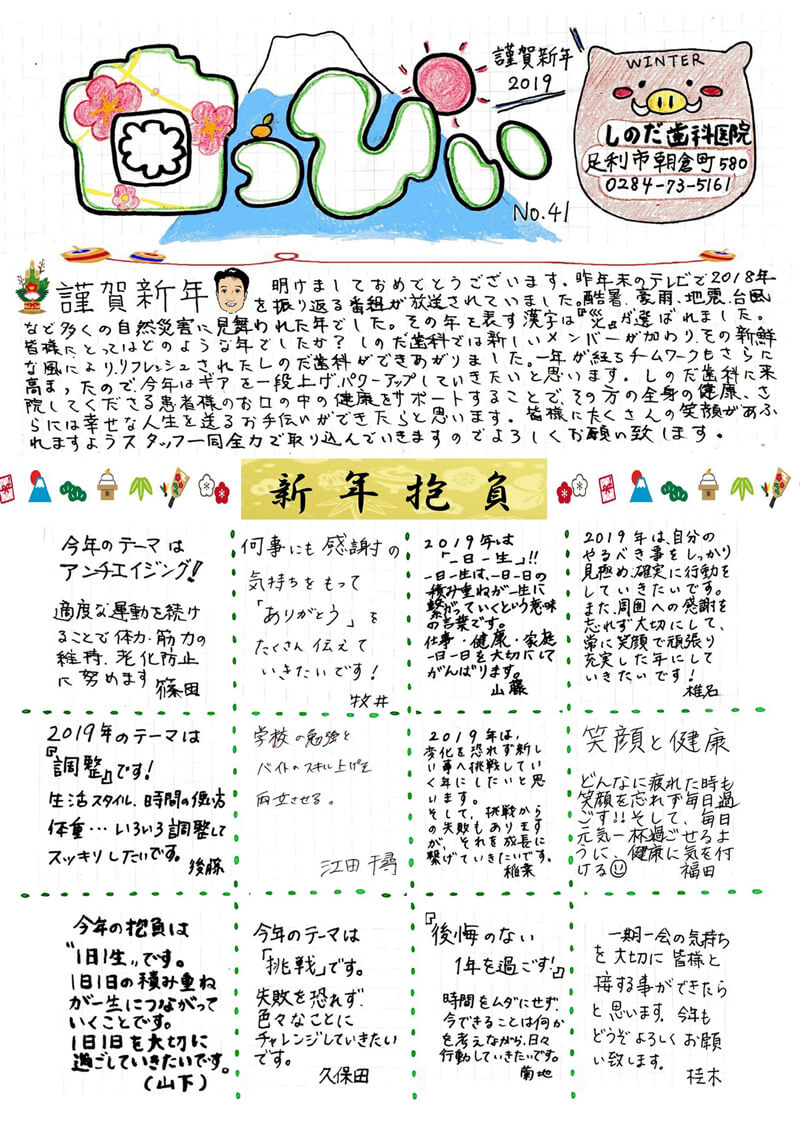 白っぴい
No.41
謹賀新年
2019
WINTER
しのだ歯科医院
足利市朝倉町580
0284-73-5161
謹賀新年
明けましておめでとうございます。昨年末のテレビで2018年
を振り返る番組が放送されていました。酷署、豪雨、地震、台風
など多くの自然災害に見舞われた年でした。その年を表す漢字は『災』が選ばれました。
皆様にとってはどのような年でしたか？しのだ歯科では新しいメンバーが加わり、その新鮮
な風により、リフレッシュされたしのだ歯科ができあがりました。一年が経るチームワークもさらに
高まったので、今年はギアを一段上げ、パワーアップしていきたいと思います。しのだ歯科に来
院してくださる患者様のお口の中の健康をサポートすることで、その方の全身の健康、さ
らには幸せな人生を送るお手伝いができたらと思います。皆様にたくさんの笑顔があふ
れますようスタッフ一同全力で取り込んでいきますのでよろしくお願い致します。
新年抱負
今年のテーマは
アンチエイジング！
適度な運動を続け
ることで体力・筋力の
維持、老化防止
に努めます
篠田
何事にも感謝の
気持ちをもって
「ありがとう」を
たくさん伝えて
いきたいです！
牧井
2019年は
「一日一生」!!
一日一生は、一日一日の
積み重ねが一生に
繋がっていくという意味
の言葉です。
仕事・健康・家庭
一日一日を大切にして
がんばります。
山藤
2019年は、自分の
やるべき事をしっかり
見極め、確実に行動を
していきたいです。
また、周囲への感謝を
忘れず大切にして、
常に笑顔で頑張り
充実した年にして
いきたいです！
椎名
2019年のテーマは
『調整』です！
生活スタイル、時間の使い方
体重…いろいろ調整して
スッキリしたいです。
後藤
学校の勉強と
バイトのスキル上げを
両立させる。
江田千尋
2019年は、
変化を恐れず新し
い事へ挑戦してい
く年にしたいと思
います。
そして、挑戦から
の失敗もあります
が、それを成長に
繋げていきたいです。
稚菜
笑顔と健康
どんなに疲れた時も
笑顔を忘れず毎日過
ごす!!そして、毎日
元気一杯過ごせるよ
うに、健康に気を付
ける
福田
今年の抱負は
"1日1生"です。
1日1日の積み重ね
が一生につながって
いくことです。
1日1日を大切に
過ごしていきたいです。
(山下)
今年のテーマは
「挑戦」です。
失敗を恐れず、
色々なことに
チャレンジしていきたい
です。
久保田
『後悔のない
1年を過ごす！』
時間をムダにせず、
今できることは何か
を考えながら、日々
行動していきたいです。
菊地
一期一会の気持ち
を大切に皆様と
接する事ができたら
と思います。今年も
どうぞよろしくお願
い致します。
桂木